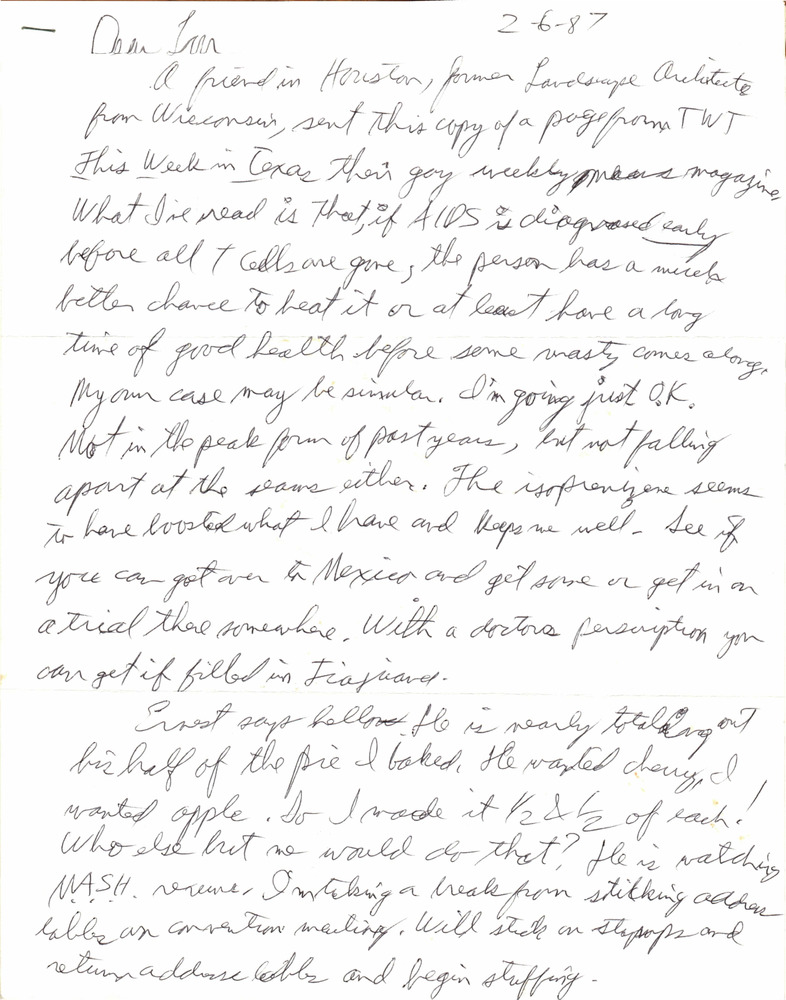 2-6-87
Dear
A friend in Houston, former Landscape Architecte
from Wisconsin, sent this copy of a page from TWT
This Week in Texas their gay weekly magazine,
What I've read is that, if AIDS is diagnosed early
before all T Cells are gone, the person has a much
better chance to beat it or at least have a long
time of good health before some nasty comes along.
My own case may be similar. I'm going just O.K.
Not in the peak form of past years, but not falling
apart at the seams either. The isoprenizene seems
to have boosted what I have and keeps me well - See if
you can get over to Mexico and get some or get in on
a trial there somewhere. With a doctors perscription you
can get if filled in Tiajuana.
Ernest says hello. He is nearly out
his half of the pie I baked. He wanted cherry, I
wanted apple. So I made it 1/2 & 1/2 of each!
Who else but me would do that? He is watching
M.A.S.H. reruns. I'm taking a break from stikking address
lables on convention mailing. Will stick on and
return address lables and begin stuffing.